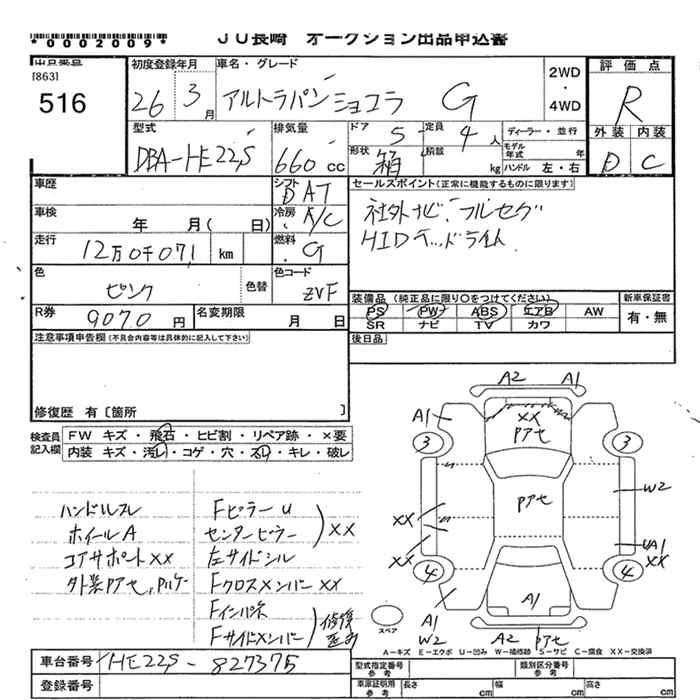 *0002009* JU長崎 オークション出品申込書
出品番号
[863]
516
初度登録年月
26 3月
車名・グレード
アルトラパンショコラ G
2WD
・
4WD
評価点
R
外装 内装
D C
型式
DBA-HE22S
排気量
660cc
ドア 5 定員 4人
形状 箱 積載 kg
ディーラー・並行
モデル年式 年
ハンドル 左・右
車歴
シフト DAT
車検 年 月( 日)
冷房 A/C
走行 12万0千071 km
燃料 G
色 ピンク 色替
色コード ZVF
R券 9070円
名変期限 月 日
セールスポイント(正常に機能するものに限ります)
社外ナビ、フルセグ
HIDヘッドライト
装備品(純正品に限り○をつけてください)
PS PW ABS エアB AW
SR ナビ TV カワ
新車保証書
有・無
後日品
注意事項申告欄(不具合内容等は具体的に記入して下さい)
修復歴 有[箇所 ]
検査員記入欄
FW キズ・飛石・ヒビ割・リペア跡・×要
内装 キズ・汚レ・コゲ・穴・スレ・キレ・破レ
ハンドルスレ
ホイールA
コアサポートXX
外装Pアセ、Pルケー
Fピラーu
センターピラー XX
左サイドシル
FクロスメンバーXX
Fインパネ
Fサイドメンバー 修復歴あり
A2 A1
A1 XX
Pアセ
3 3
Pアセ
W2
XX
XX
UA1
XX
4 4
A1
A1
W2
A2 Pアセ
スペア
A-キズ E-エクボ U-凹み W-補修跡 S-サビ C-腐食 XX-交換済
車台番号 HE22S-827375
登録番号
型式指定番号 参考
類別区分番号 参考
車庫証明用 参考 長さ cm 幅 cm 高さ cm